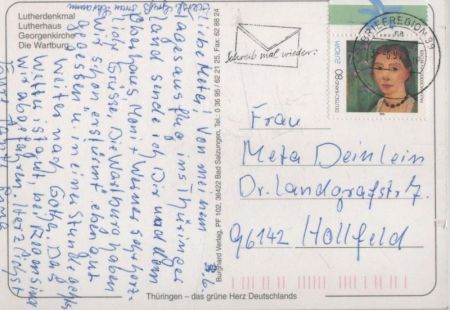 Lutherdenkmal
Lutherhaus
Georgenkirche
Die Wartburg
3.6.
Liebe Meta! Von meinem
Tagesausflug ins Thüringer
Land sende ich Dir und dem
liebe Grüsse. Die Wartburg haben
wir schon erstürmt eben gut
gegessen u. in einer Stunde gehts
weiter nach Gotha. Das
Wetter ist gut, bei
wir abgefahren. Herzlichst
Burghard Verlag, PF 102, 36422 Bad Salzungen, Tel. 0 36 95 / 62 21 25, Fax: 62 88 24
Schreib mal wieder!
BRIEFREGION 99
Frau
Meta Deinlein
Dr. Landgrafstr. 7
96142 Hollfeld
Thüringen – das grüne Herz Deutschlands